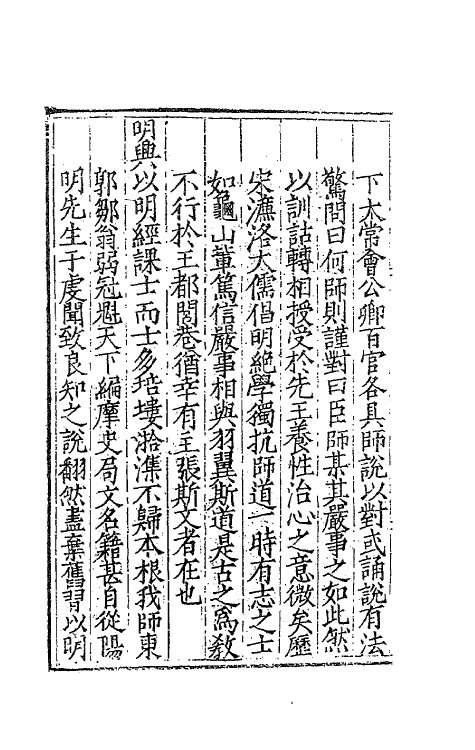 下太常會公卿百官各具師說以對或誦說有法
驚問曰何師則謹對曰臣師某其嚴事之如此然
以訓詁轉相授受於先王養性治心之意微矣歷
宋濂洛大儒倡明絶學獨抗師道一時有志之士
如龜山輩篤信嚴事相與羽翼斯道是古之爲敎
不行於王都閭巷猶幸有主張斯文者在也
明興以明經課士而士多培塿潝潗不歸本根我師東
郭鄒翁弱冠魁天下編摩史局文名籍甚自從陽
明先生于虔聞致良知之說翻然盡棄舊習以明